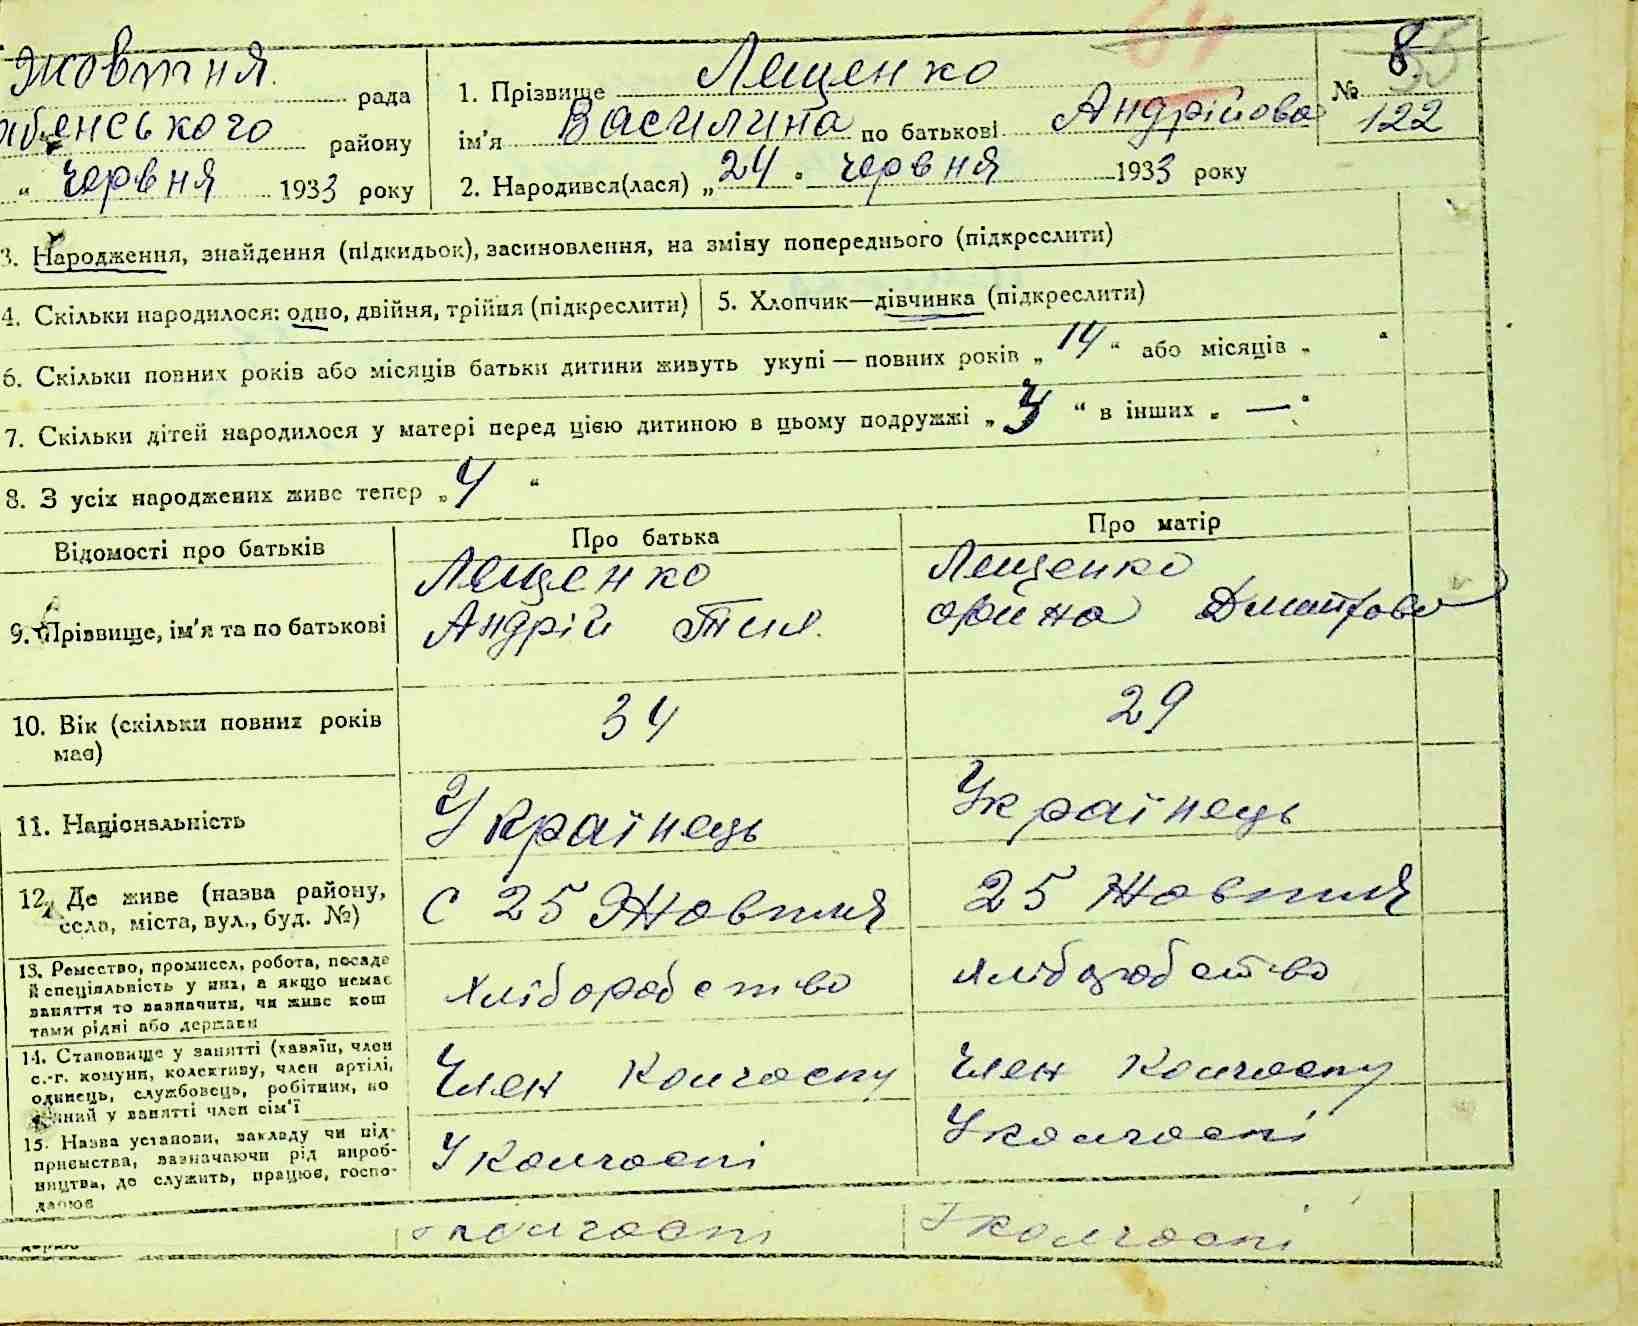 Жовтня рада
1. Прізвище Лещенко
№ 8
122
ім'я Василина по батькові Андрійова
району
2. Народився(лася) „24" червня 1933 року
“ червня 1933 року
3. Народження, знайдення (підкидьок), засиновлення, на зміну попереднього (підкреслити)
4. Скільки народилося: одно, двійня, трійня (підкреслити)
5. Хлопчик—дівчинка (підкреслити)
6. Скільки повних років або місяців батьки дитини живуть укупі — повних років „14“ або місяців „ “
7. Скільки дітей народилося у матері перед цією дитиною в цьому подружжі „ “ в інших „—“
8. З усіх народжених живе тепер „4“
Відомості про батьків
Про батька
Про матір
9. Прізвище, ім'я та по батькові
Лещенко
Андрій Тим.
Лещенко
Орина Дмитрова
10. Вік (скільки повних років
має)
34
29
11. Національність
Українець
Українець
12. Де живе (назва району,
села, міста, вул., буд. №)
с 25 Жовтня
25 Жовтня
13. Ремество, промисел, робота, посада
й спеціяльність у них, а якщо немає
заняття то зазначити, чи живе кош
тами рідні або держави
хліборобство
хліборобство
14. Становище у занятті (хазяїн, член
с.-г. комуни, колективу, член артілі,
одинець, службовець, робітник, по
у занятті член сім'ї
Член колгоспу
Член колгоспу
15. Назва установи, закладу чи під-
приємства, зазначаючи рід вироб-
ництва, де служить, працює, госпо-
дарює
У колгоспі
У колгоспі
колгоспі
У колгоспі